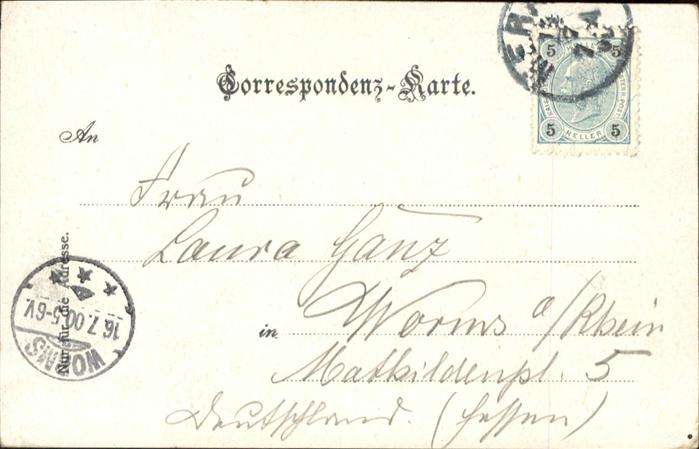 Correspondenz-Karte.
5 5
5 5
HELLER
An
Frau
Laura Ganz
Worms a/Rhein
in
Mathildenpl. 5
Deutschland. (Hessen)
Nur für die Adresse.
WORMS
16.7.00.5-6V.